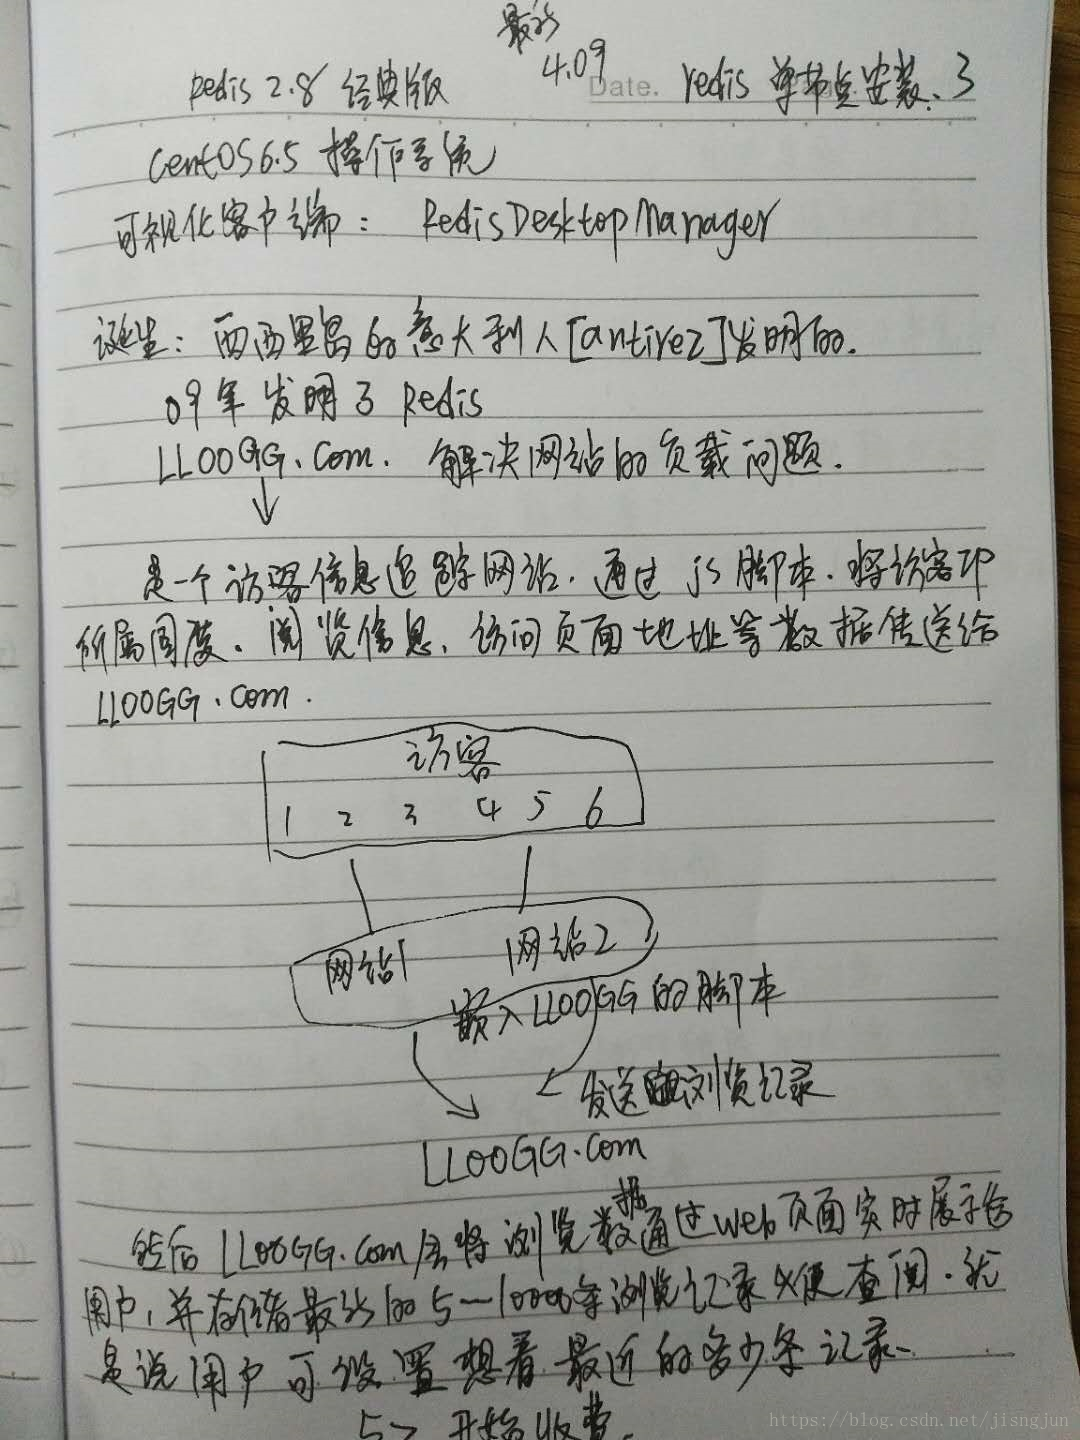 最新
4.09
Redis 2.8 经典版
Date.
redis 单节点安装.3
CentOS6.5 操作系统
可视化客户端： RedisDesktopManager
诞生：西西里岛的意大利人[antirez]发明的.
09年发明了 Redis
LLOOGG.com. 解决网站的负载问题.
是一个访客信息追踪网站.通过js脚本.将访客IP
所属国度.阅览信息.访问页面地址等数据传送给
LLOOGG.com.
访客
1 2 3 4 5 6
网站1 网站2
嵌入LLOOGG的脚本
发送浏览记录
LLOOGG.com
然后LLOOGG.com会将浏览数据通过web页面实时展示给
用户,并存储最新的5—10000条浏览记录以便查阅.就
是说用户可设置想看最近的多少条记录.
5> 开始收费.
https://blog.csdn.net/jisngjun